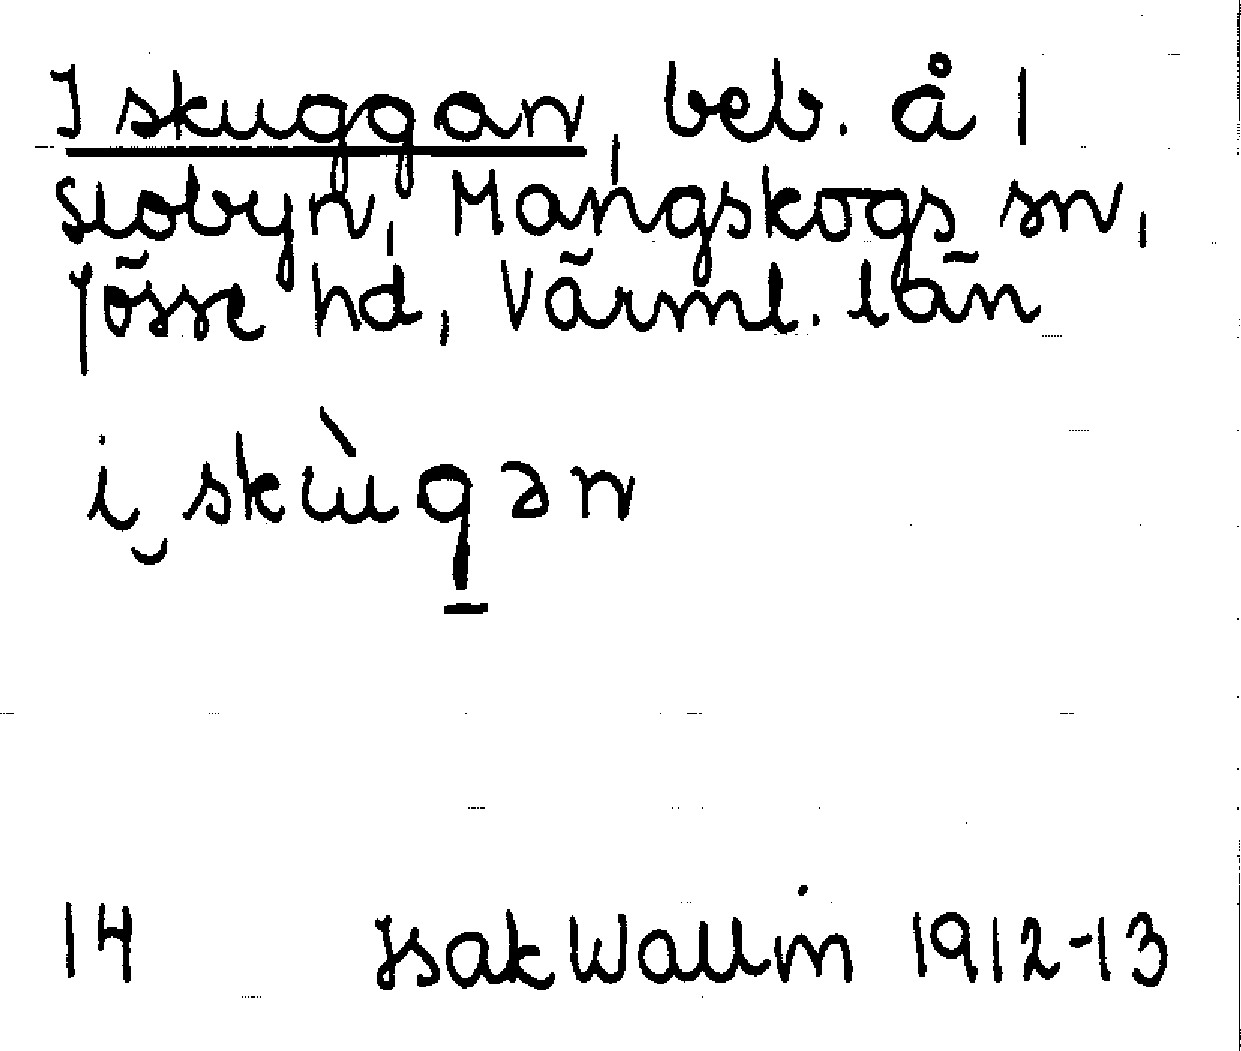 I skuggan, beb. å 1
Slobyn, Mangskogs sn,
Jösse hd, Värml. län
i‿skùgən
14 Isak Wallin 1912-13